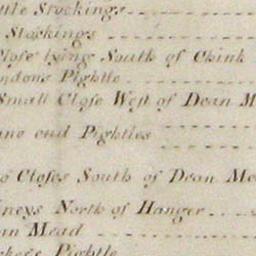 ttle Stockings
Stockings
Close lying South of Chink
ndons Pightle
Small Close West of Dean M
ane end Pightles
o Closes South of Dean Me
neys North of Hanger
an Mead
ker's Pightle